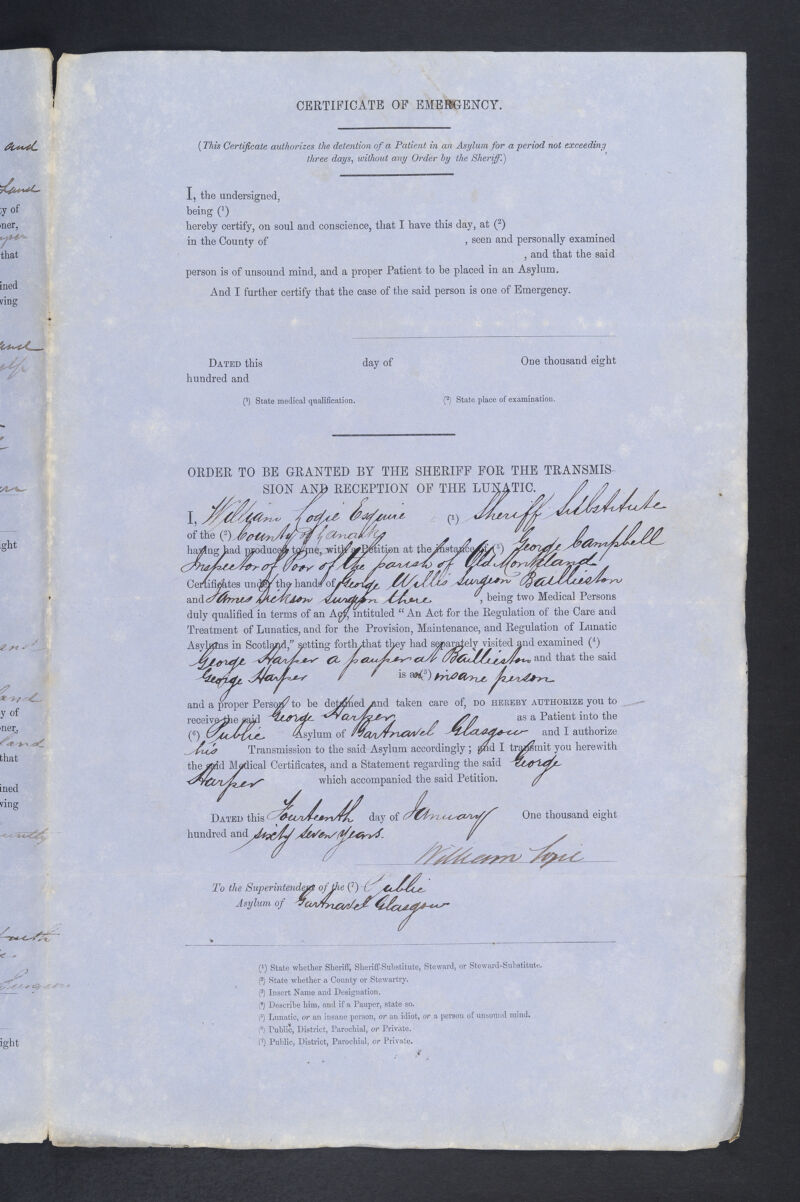 CERTIFICATE OF EMERGENCY.
(This Certificate authorizes the detention of a Patient in an Asylum for a period not exceeding
three days, without any Order by the Sheriff.)
I, the undersigned,
being (¹)
hereby certify, on soul and conscience, that I have this day, at (²)
in the County of , seen and personally examined
, and that the said
person is of unsound mind, and a proper Patient to be placed in an Asylum.
And I further certify that the case of the said person is one of Emergency.
DATED this day of One thousand eight
hundred and
(¹) State medical qualification. (²) State place of examination.
ORDER TO BE GRANTED BY THE SHERIFF FOR THE TRANSMIS-
SION AND RECEPTION OF THE LUNATIC.
I, William Logie Esquire (¹) Sheriff Substitute
of the (²) County of Lanark
having had produced to me, with a Petition at the instance of (³) George Campbell
Inspector of Poor of the parish of Old Monkland
Certificates under the hands of George Willis Surgeon Baillieston
and James Dickson Surgeon there , being two Medical Persons
duly qualified in terms of an Act, intituled “An Act for the Regulation of the Care and
Treatment of Lunatics, and for the Provision, Maintenance, and Regulation of Lunatic
Asylums in Scotland,” setting forth that they had separately visited and examined (⁴)
George Harper a pauper at Baillieston and that the said
George Harper is an (⁵) insane person
and a proper Person to be detained and taken care of, DO HEREBY AUTHORIZE you to
receive the said George Harper as a Patient into the
(⁶) Public Asylum of Gartnavel Glasgow and I authorize
his Transmission to the said Asylum accordingly; and I transmit you herewith
the said Medical Certificates, and a Statement regarding the said George
Harper which accompanied the said Petition.
DATED this Fourteenth day of January One thousand eight
hundred and sixty seven years.
William Logie
To the Superintendent of the (⁷) Public
Asylum of Gartnavel Glasgow
(¹) State whether Sheriff, Sheriff-Substitute, Steward, or Steward-Substitute.
(²) State whether a County or Stewartry.
(³) Insert Name and Designation.
(⁴) Describe him, and if a Pauper, state so.
(⁵) Lunatic, or an insane person, or an idiot, or a person of unsound mind.
(⁶) Public, District, Parochial, or Private.
(⁷) Public, District, Parochial, or Private.